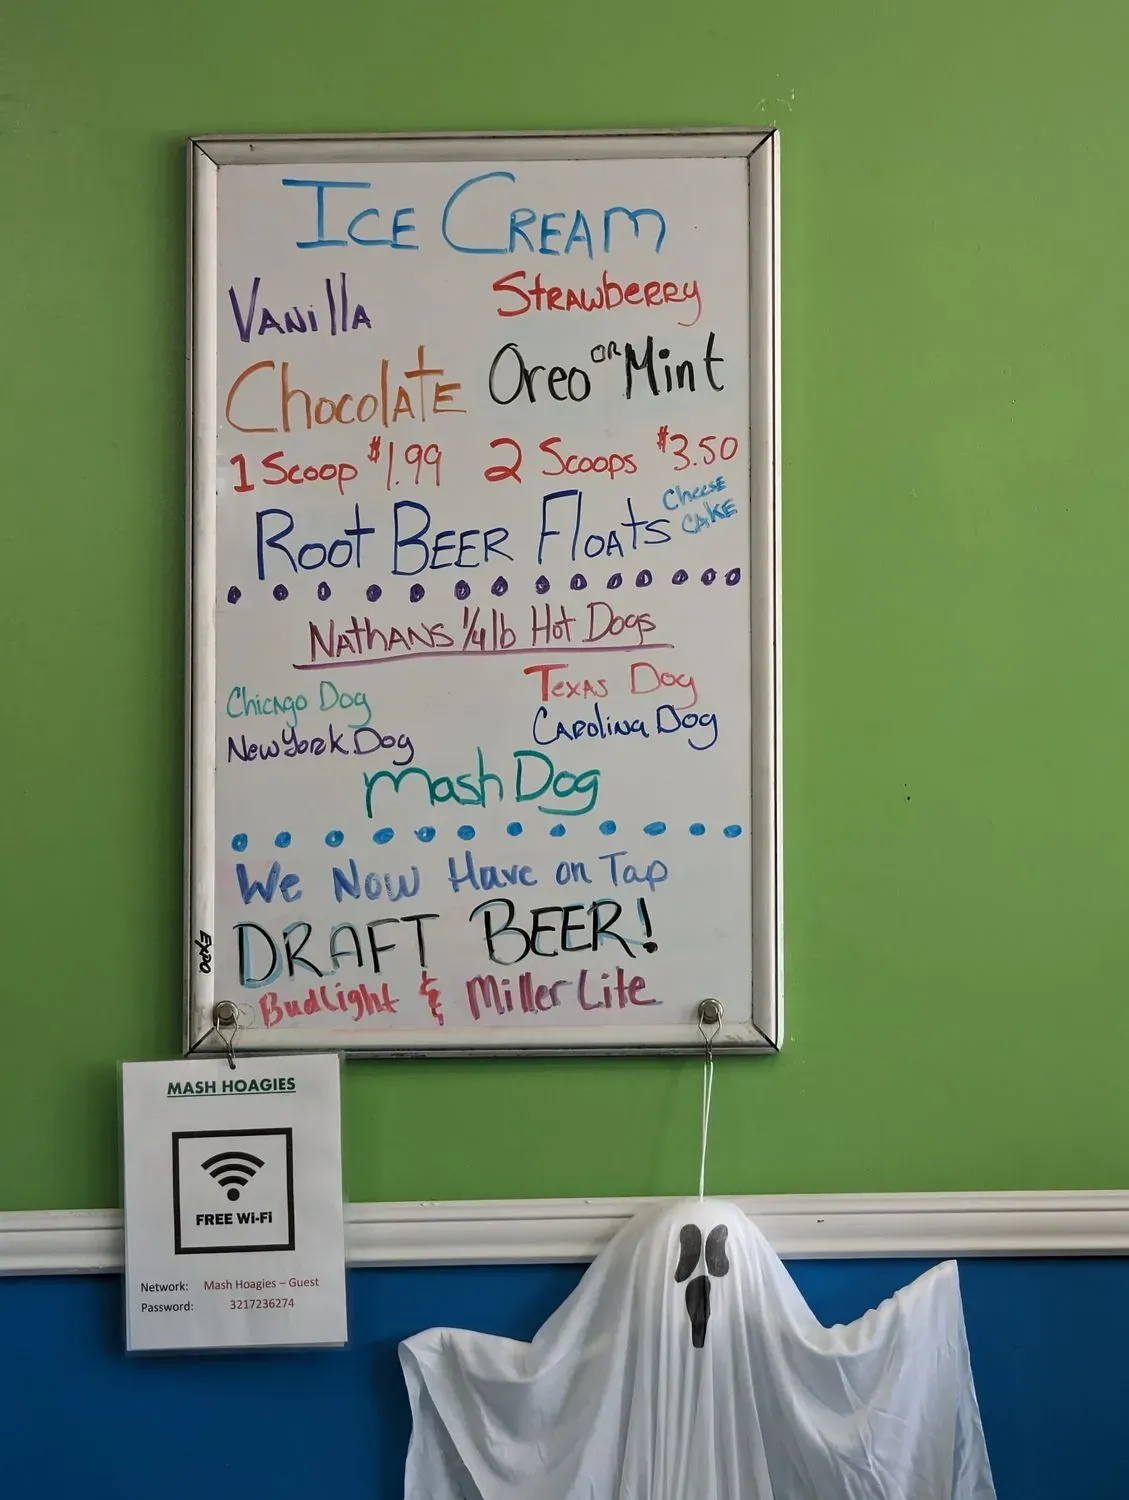 ICE CREAM
VANillA
STRAWbERRY
ChocolATE
Oreo OR Mint
1 Scoop $1.99
2 Scoops $3.50
Root BEER FloAts
Cheese
CAKE
NAthANS 1/4 lb Hot Dogs
Chicago Dog
TEXAS Dog
New York Dog
CARolina Dog
Mash Dog
We Now Have on Tap
DRAFT BEER!
Bud Light & Miller Lite
EXPO
MASH HOAGIES
FREE Wi-Fi
Network: Mash Hoagies – Guest
Password: 3217236274